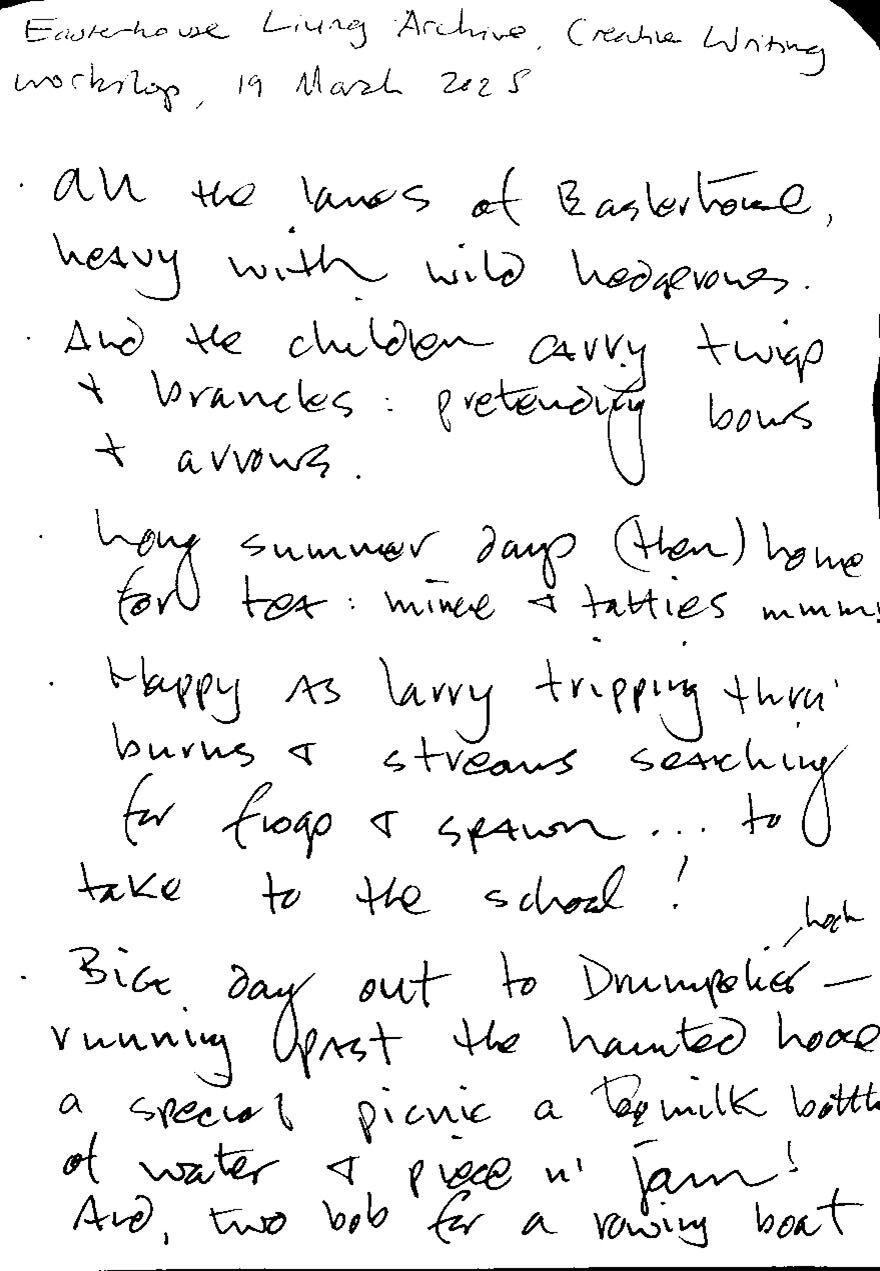 Easterhouse Living Archive, Creative Writing
workshop, 19 March 2025
· all the lanes of Easterhouse,
heavy with wild hedgerows.
· And the children carry twigs
+ branches : pretending bows
+ arrows.
· Long summer days (then) home
for tea : mince & tatties mmm!
· Happy as larry tripping thru'
burns & streams searching
for frogs & spawn ... to
take to the school !
loch
· Big day out to Drumpelier —
running past the haunted house
a special picnic a milk bottle
of water & piece n' jam!
And, two bob for a rowing boat